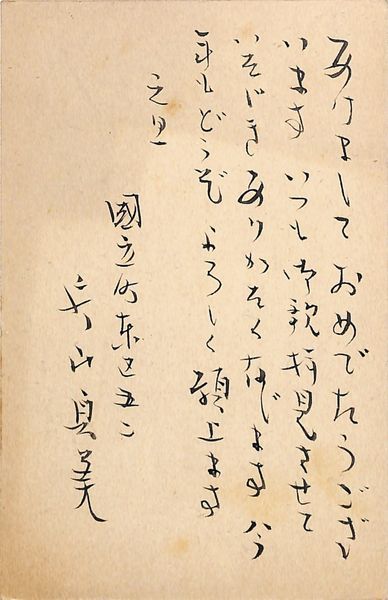 あけまして おめでたうござ
います いつも御歌拝見させて
いたゞき ありかたく存じます 今
年もどうぞ よろしく願上ます
元旦
國立町東区五二
山